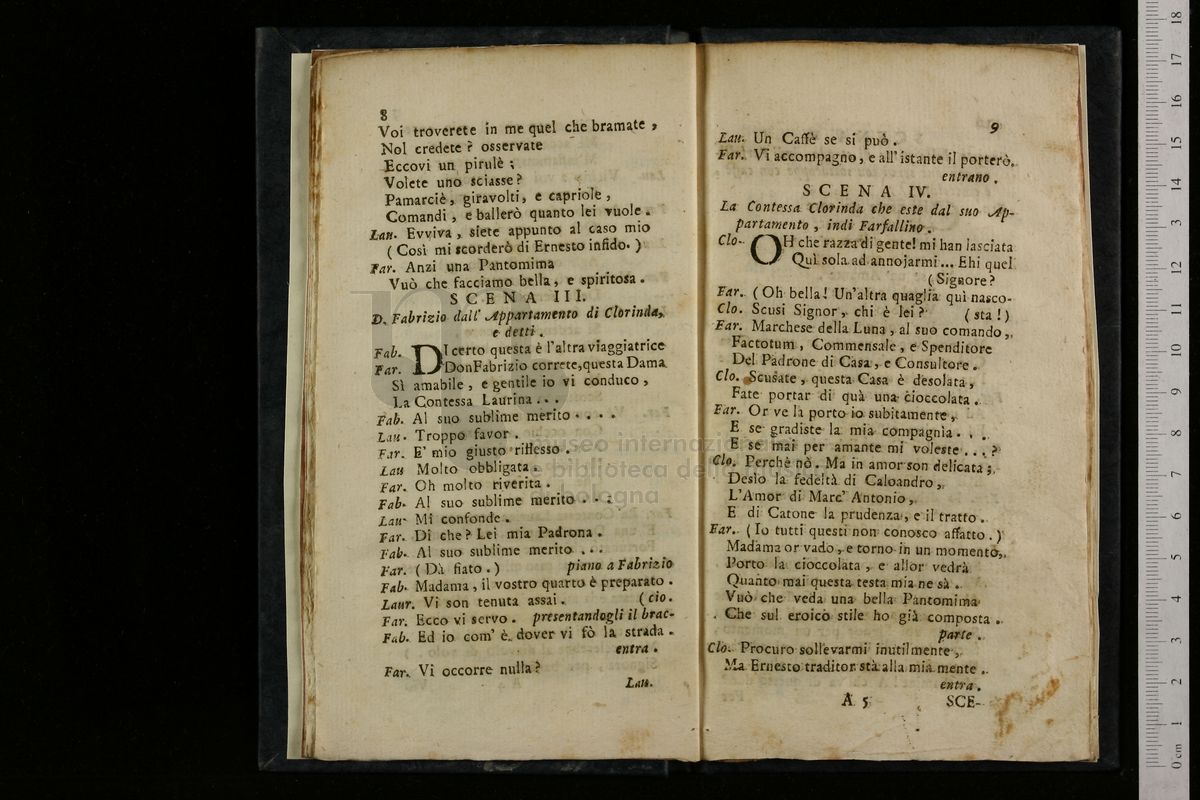 8
Voi troverete in me quel che bramate ,
Nol credete ? osservate
Eccovi un pirulè ;
Volete uno sciasse ?
Pamarciè , giravolti , e capriole ,
Comandi , e ballerò quanto lei vuole .
Lau. Evviva , siete appunto al caso mio
( Così mi scorderò di Ernesto infido. )
Far. Anzi una Pantomima
Vuò che facciamo bella , e spiritosa .
SCENA III.
D. Fabrizio dall' Appartamento di Clorinda,
e detti .
Fab. DI certo questa è l'altra viaggiatrice
Far. DonFabrizio correte,questa Dama
Sì amabile , e gentile io vi conduco ,
La Contessa Laurina . . .
Fab. Al suo sublime merito . . . .
Lau. Troppo favor .
Far. E' mio giusto riflesso .
Lau Molto obbligata .
Far. Oh molto riverita .
Fab. Al suo sublime merito . . .
Lau. Mi confonde .
Far. Di che ? Lei mia Padrona .
Fab. Al suo sublime merito . . .
Far. ( Dà fiato . ) piano a Fabrizio
Fab. Madama , il vostro quarto è preparato .
Laur. Vi son tenuta assai . ( cio .
Far. Ecco vi servo . presentandogli il brac-
Fab. Ed io com' è dover vi fò la strada .
entra .
Far. Vi occorre nulla ?
Lau.
9
Lau. Un Caffè se si può .
Far. Vi accompagno , e all' istante il porterò.
entrano .
SCENA IV.
La Contessa Clorinda che este dal suo Ap-
partamento , indi Farfallino .
Clo. OH che razza di gente! mi han lasciata
Quì sola ad annojarmi ... Ehi quel
( Signore ?
Far. ( Oh bella ! Un'altra quaglia quì nasco-
Clo. Scusi Signor , chi è lei ? ( sta ! )
Far. Marchese della Luna , al suo comando ,
Factotum , Commensale , e Spenditore
Del Padrone di Casa , e Consultore .
Clo. Scusate , questa Casa è desolata ,
Fate portar di quà una cioccolata .
Far. Or ve la porto io subitamente ,
E se gradiste la mia compagnìa . . .
E se mai per amante mi voleste . . . ?
Clo. Perchè nò . Ma in amor son delicata ;
Desìo la fedeltà di Caloandro ,
L'Amor di Marc' Antonio ,
E di Catone la prudenza , e il tratto .
Far. ( Io tutti questi non conosco affatto . )
Madama or vado , e torno in un momento,
Porto la cioccolata , e allor vedrà
Quanto mai questa testa mia ne sà .
Vuò che veda una bella Pantomima
Che sul eroicò stile ho già composta .
parte .
Clo. Procuro sollevarmi inutilmente ,
Ma Ernesto traditor stà alla mia mente .
entra .
A 5 SCE-
museo internazionale
biblioteca della musica
bologna